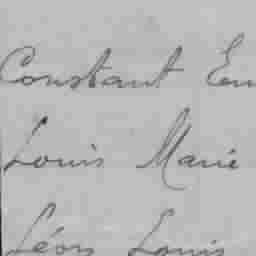 Constant Em
Louis Marie
Léon Louis